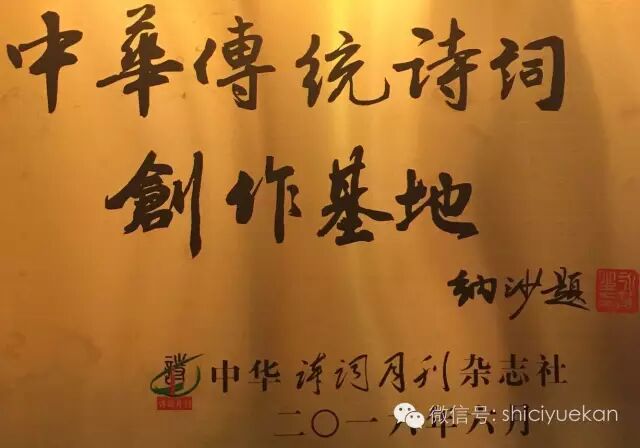 中華傳统诗词
創作基地
纳沙题
中华诗词月刊杂志社
诗词月刊
二〇一六年六月
微信号: shiciyuekan